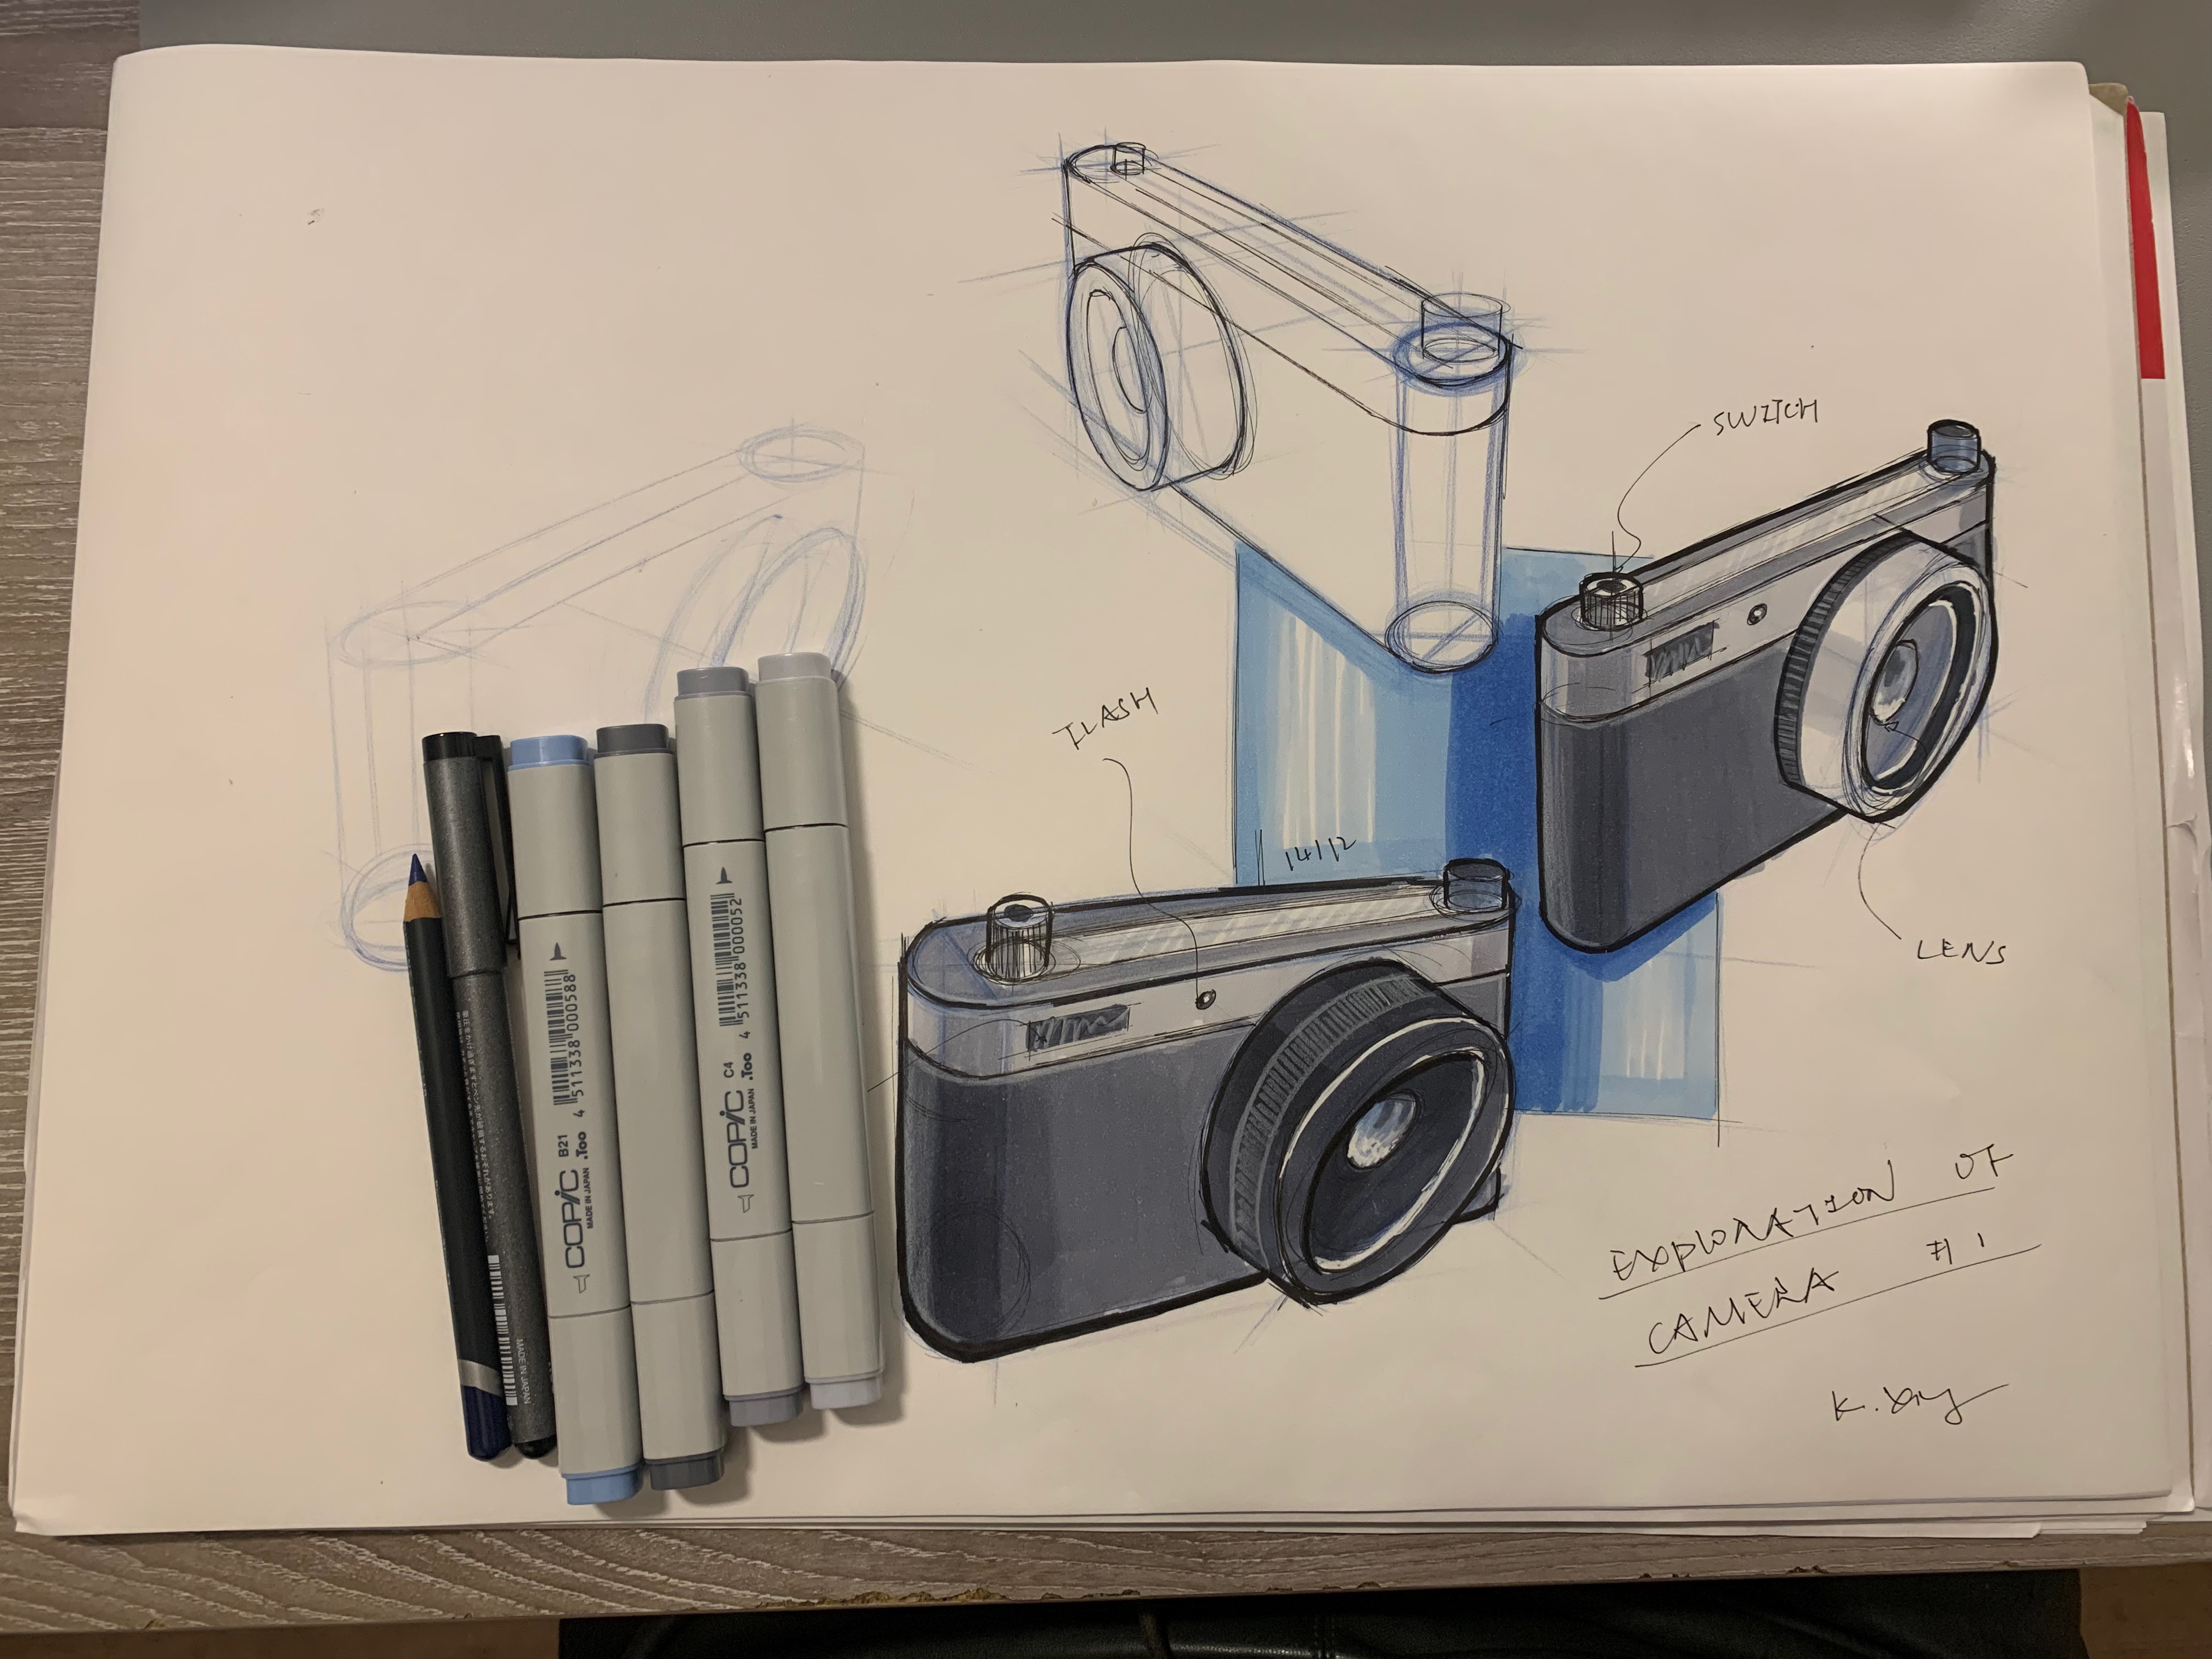 SWITCH
FLASH
14/12
LENS
EXPLORATION OF
CAMERA #1
COPIC B21
MADE IN JAPAN .Too
4 511338 000588
COPIC C4
MADE IN JAPAN .Too
4 511338 000052
MADE IN JAPAN